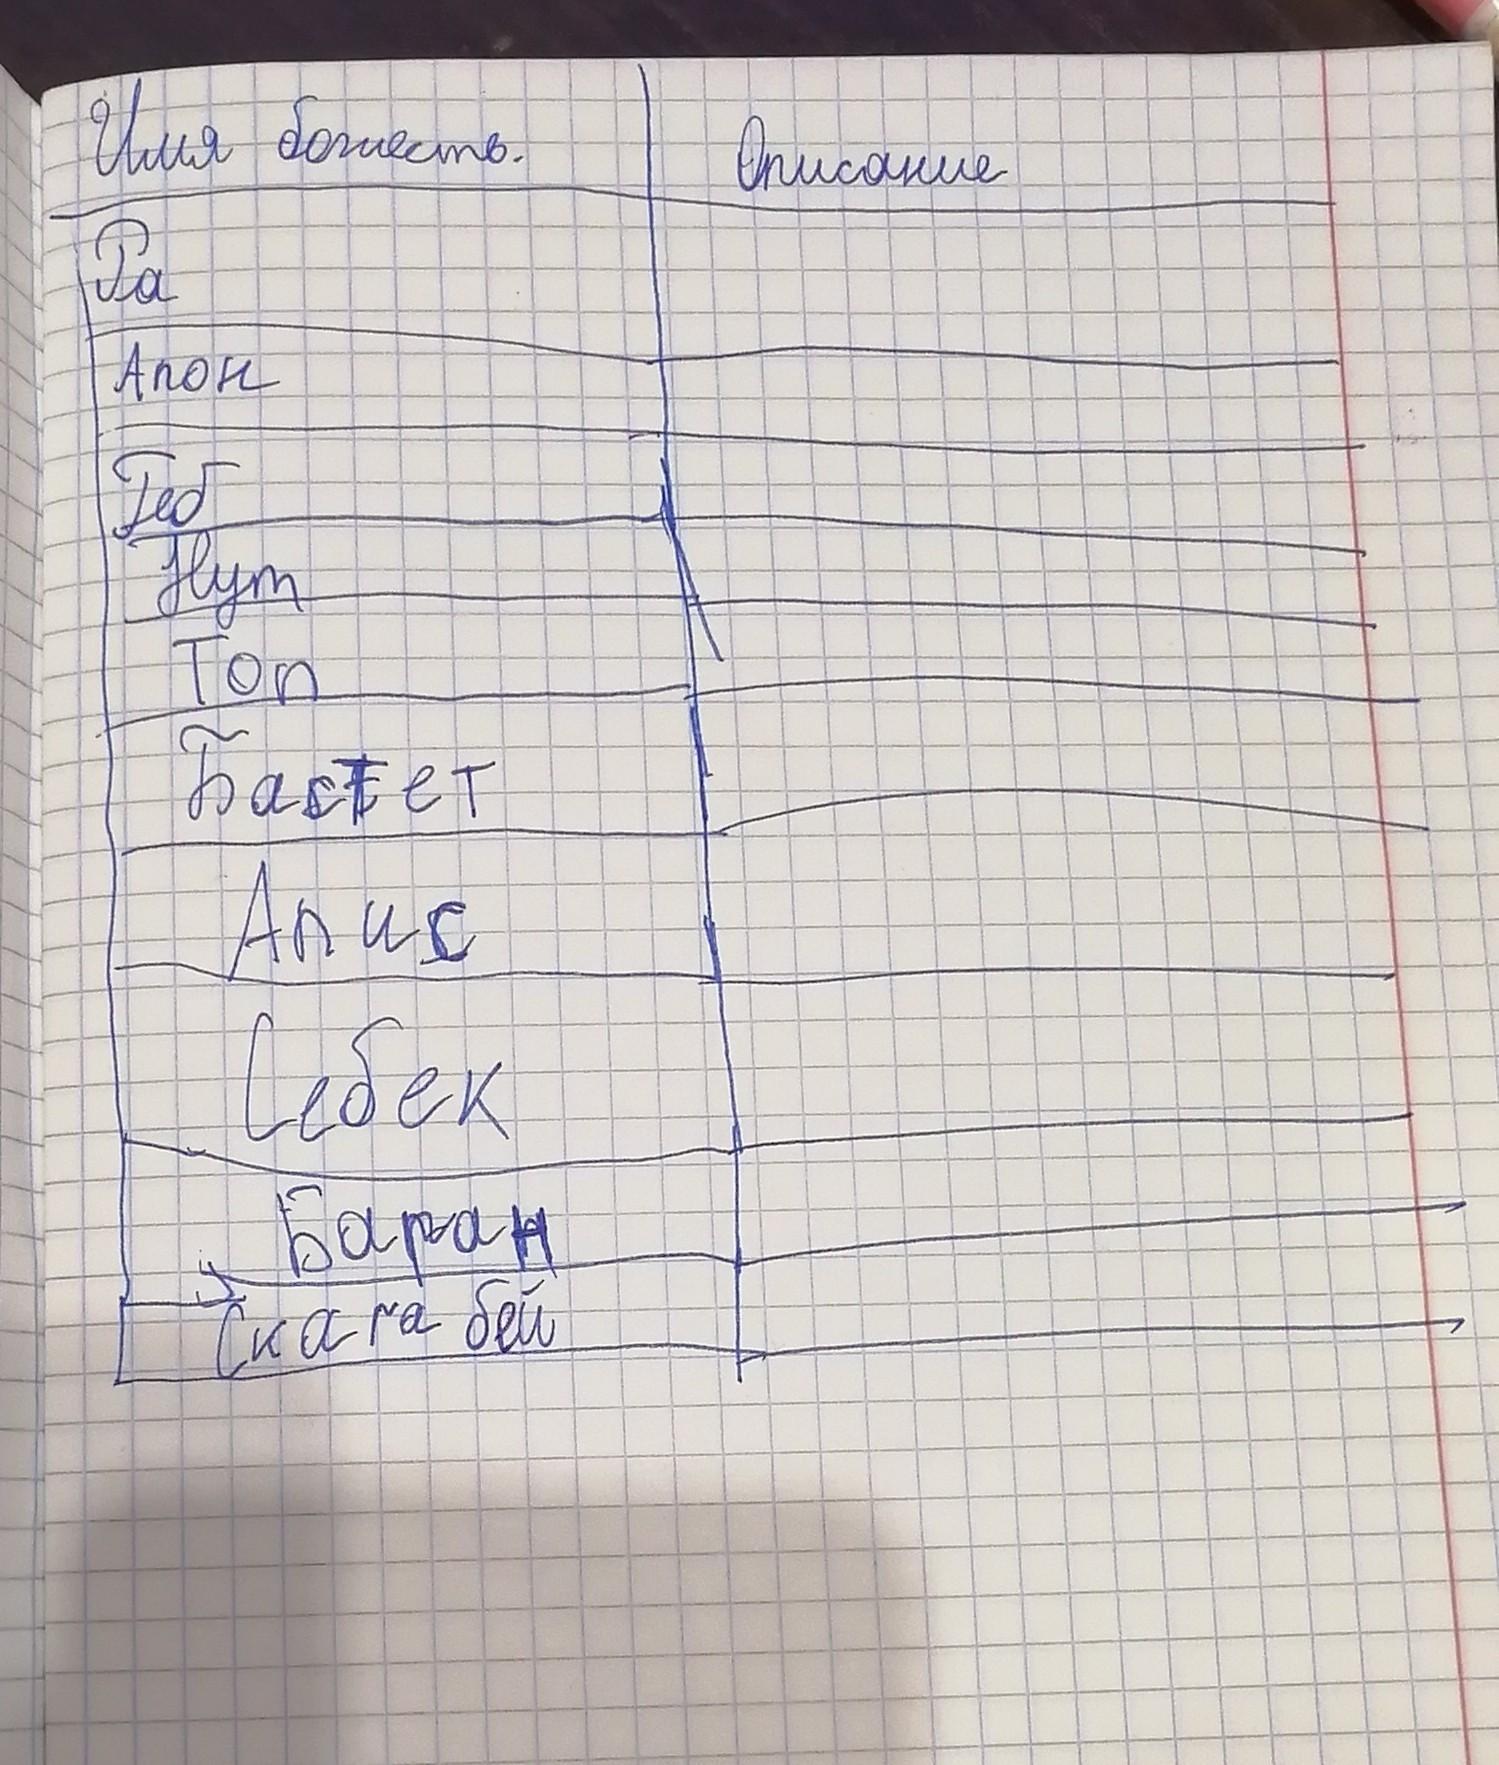 Имя божеств. Описание
Ра
Апон
Геб
Нут
Топ
Бастет
Апис
Себек
Баран
Скарабей